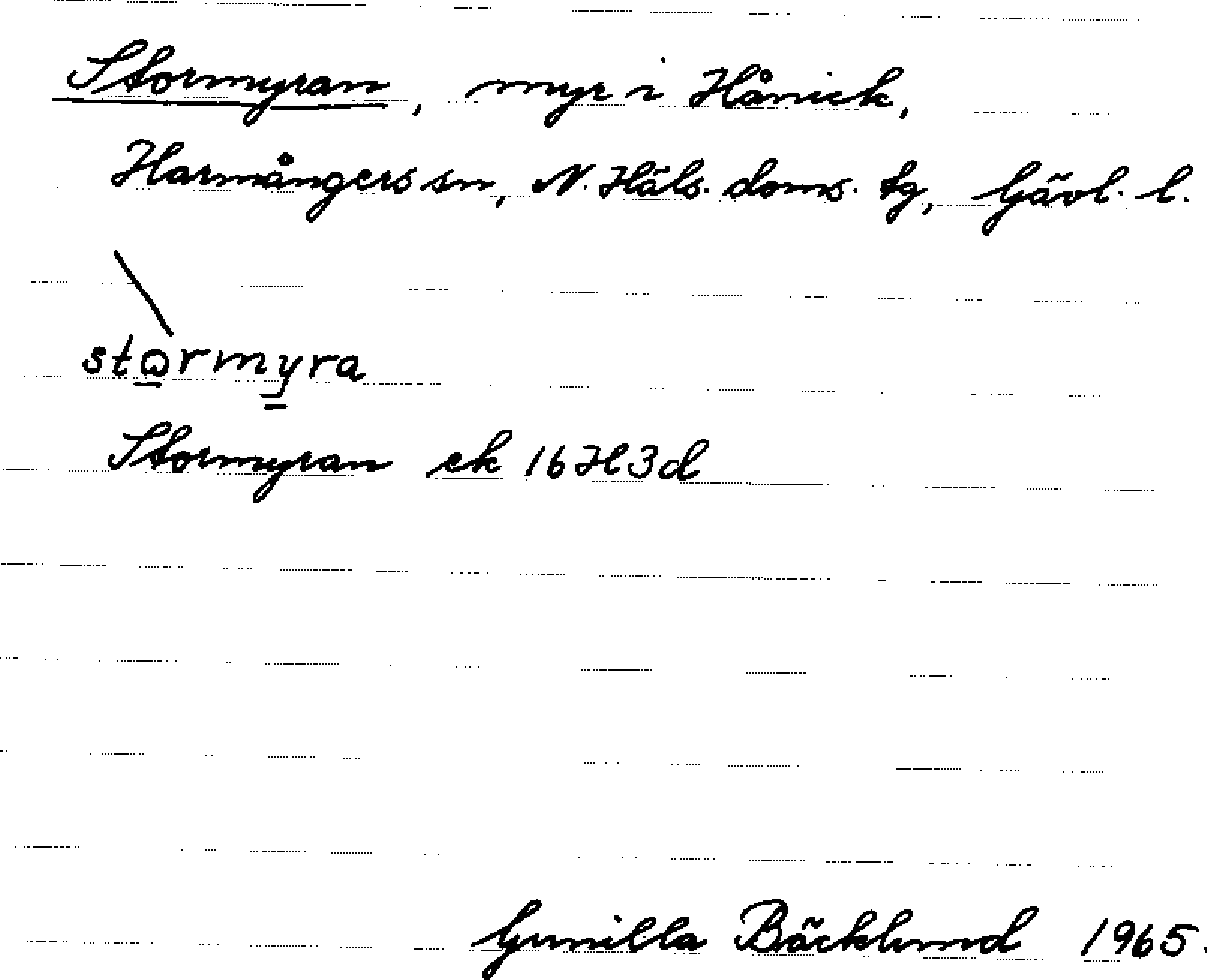 Stormyran, myr i Hånick,
Harmångers sn, N. Häls. doms. tg, Gävl. l.
stωrmyra
Stormyran ek 16H3d
Gunilla Bäcklund 1965.